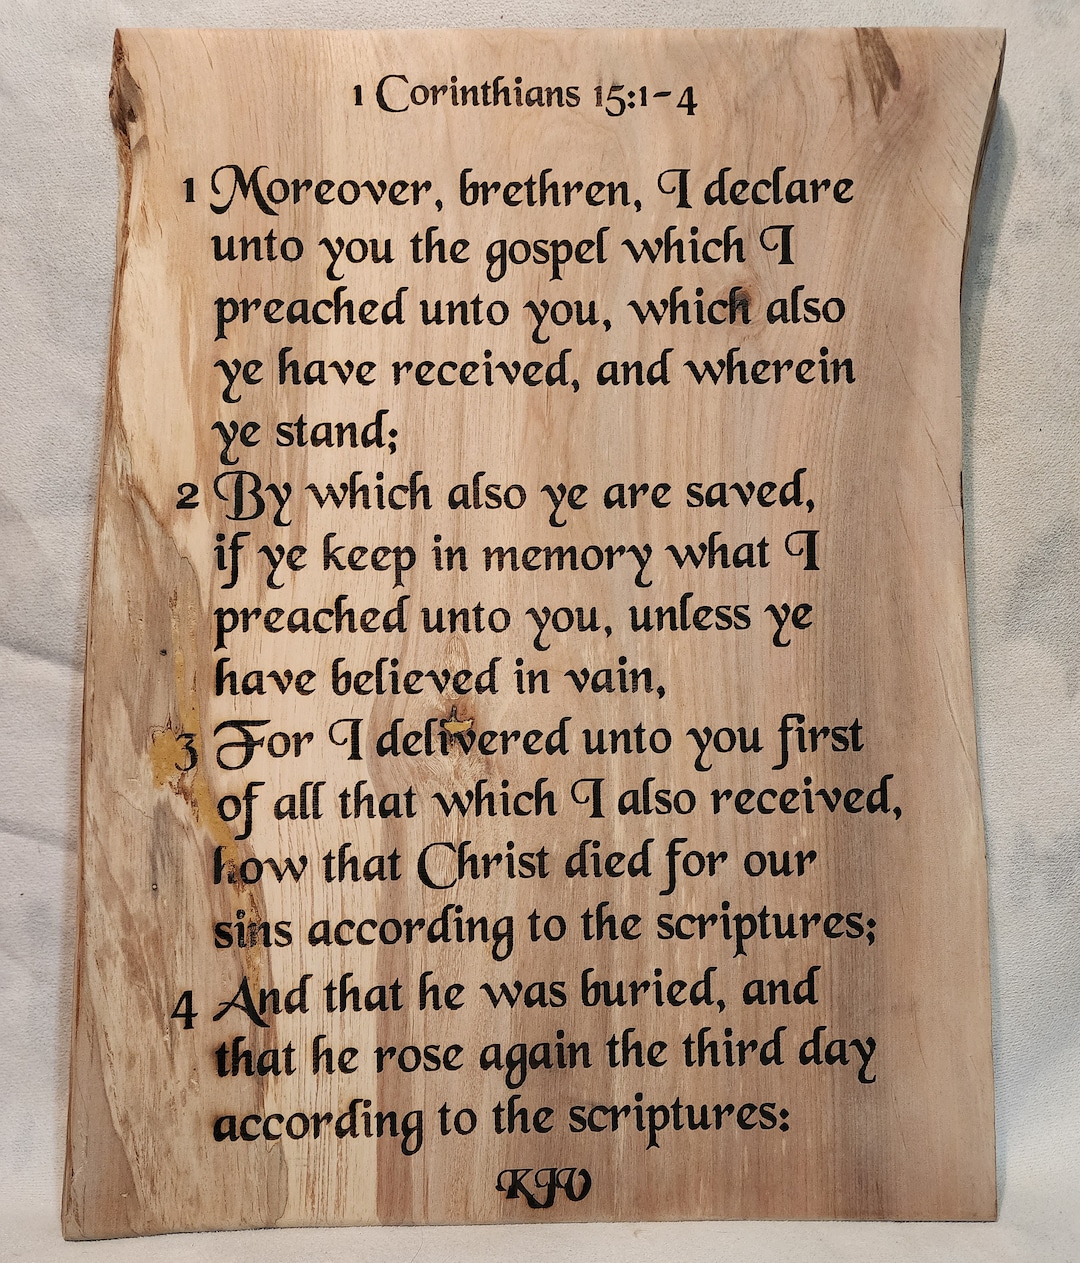 1 Corinthians 15:1-4
1 Moreover, brethren, I declare
unto you the gospel which I
preached unto you, which also
ye have received, and wherein
ye stand;
2 By which also ye are saved,
if ye keep in memory what I
preached unto you, unless ye
have believed in vain,
3 For I delivered unto you first
of all that which I also received,
how that Christ died for our
sins according to the scriptures;
4 And that he was buried, and
that he rose again the third day
according to the scriptures:
KJV